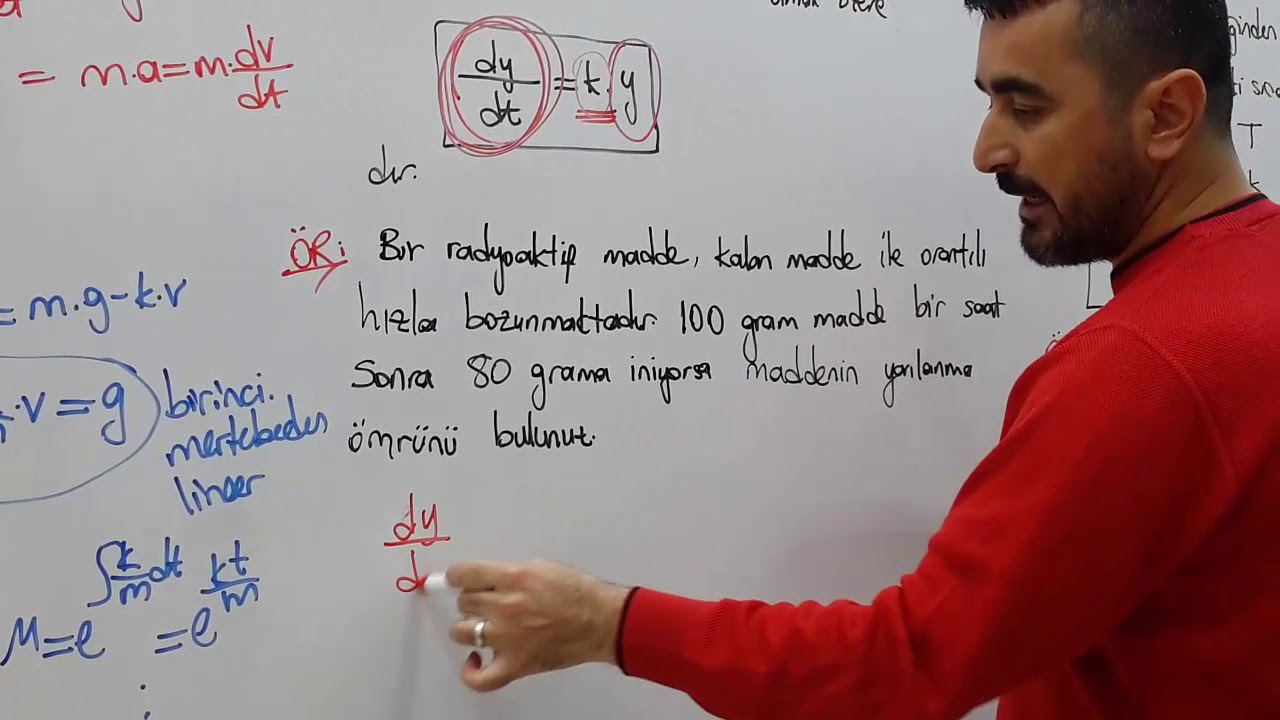 olmak üzere
= m.a = m.dv/dt
dy/dt = k.y
dır.
ÖR: Bir radyoaktif madde, kalan madde ile orantılı
hızla bozunmaktadır. 100 gram madde bir saat
sonra 80 grama iniyorsa maddenin yarılanma
ömrünü bulunuz.
= m.g-k.v
.v = g
birinci.
mertebeden
lineer
∫k/m dt kt/m
M=e =e
dy
d
T
k